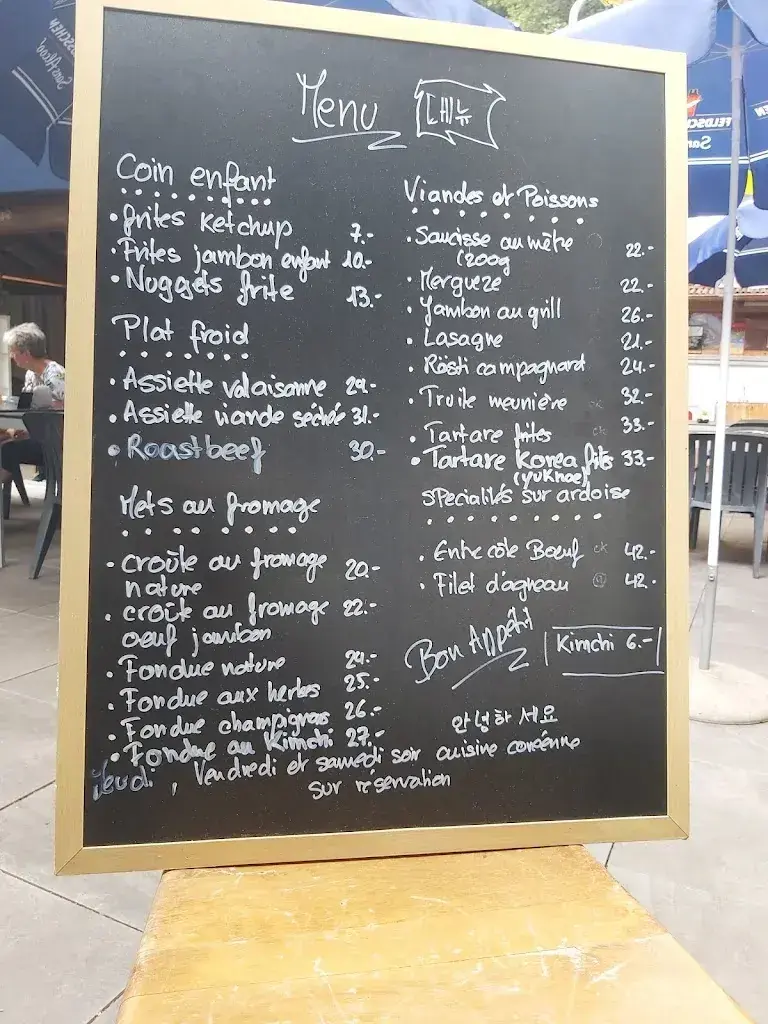 Menu 메뉴
Coin enfant
• frites Ketchup 7.-
• Frites jambon enfant 10.-
• Nuggets frite 13.-
Plat froid
• Assiette valaisanne 29.-
• Assiette viande sechée 31.-
• Roastbeef 30.-
Mets au fromage
• croûte au fromage 20.-
nature
• croût au fromage 22.-
oeuf jambon
• Fondue nature 24.-
• Fondue aux herbes 25.-
• Fondue champignons 26.-
• Fondue au Kimchi 27.-
Viandes et Poissons
• Saucisse au mètre 22.-
(200g
• Mergueze 22.-
• Jambon au grill 26.-
• Lasagne 21.-
• Rösti campagnard 24.-
• Truite meunière 32.-
• Tartare frites 33.-
• Tartare Korea frites 33.-
(yukhoe)
specialités sur ardoise
• Entrecôte Boeuf 42.-
• Filet d'agneau 42.-
Bon Appétit
Kimchi 6.-
안녕하세요
Jeudi, Vendredi et samedi soir cuisine coréenne
sur réservation